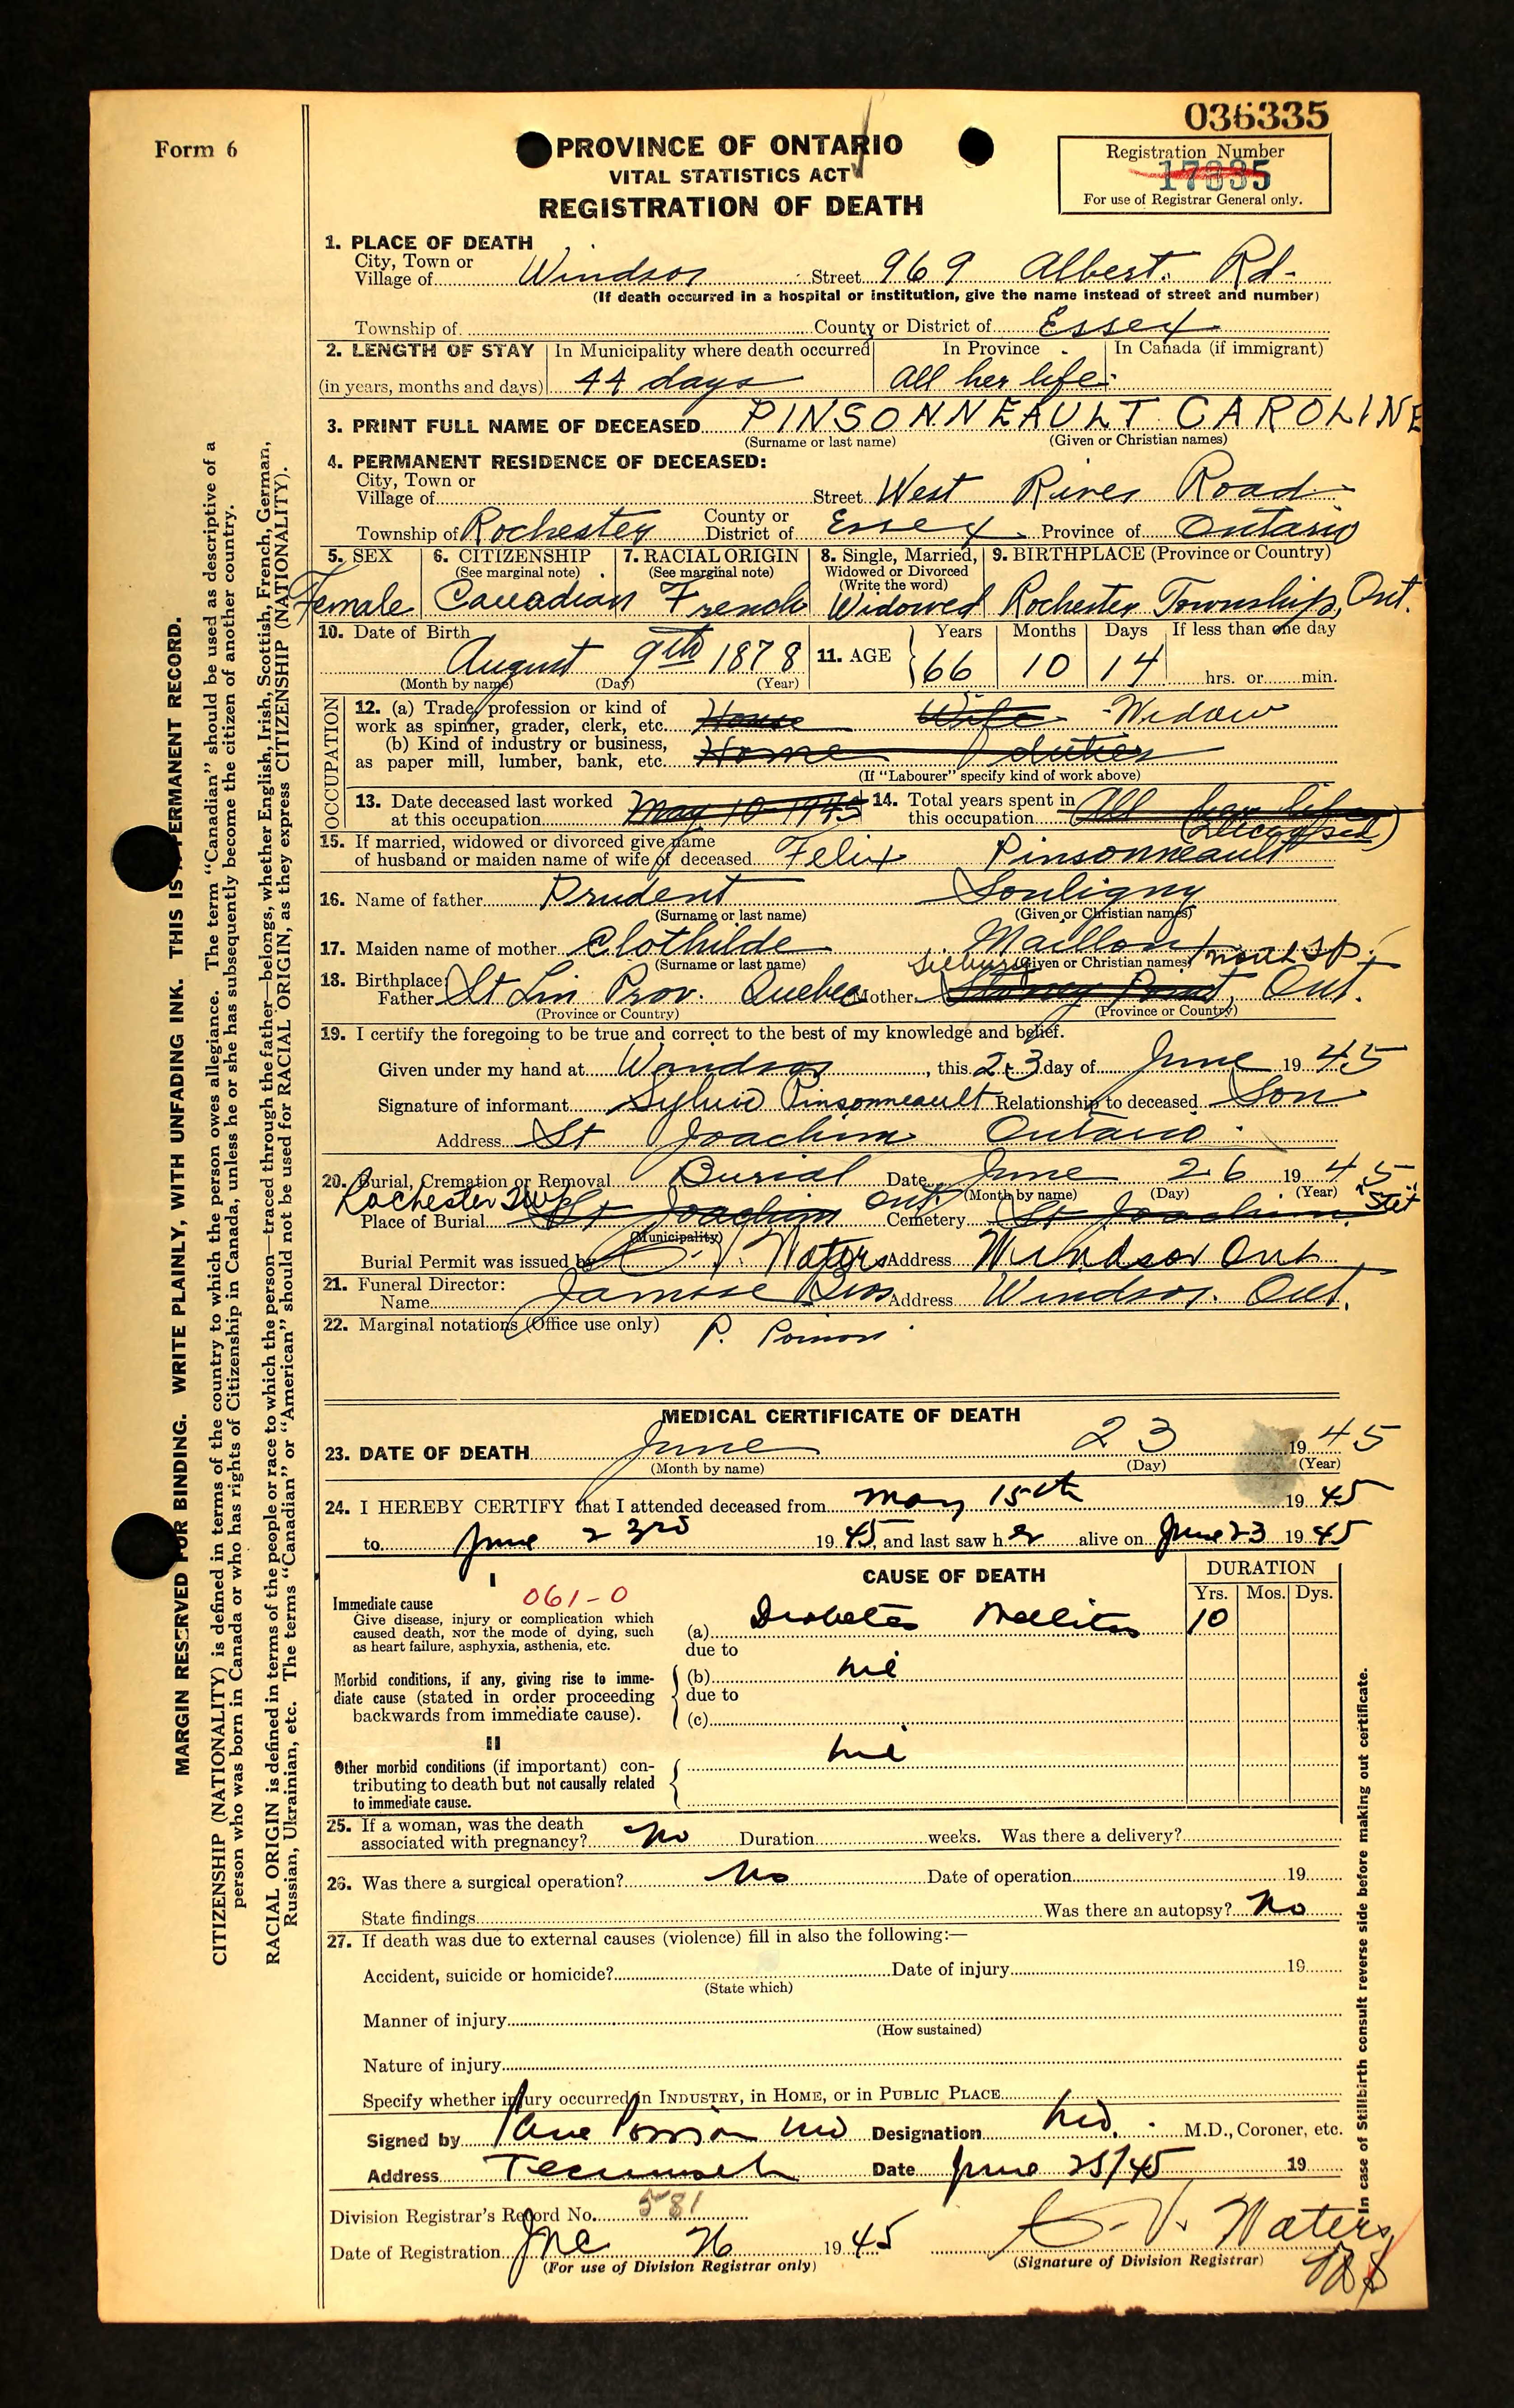 036335
Form 6
PROVINCE OF ONTARIO
VITAL STATISTICS ACT
REGISTRATION OF DEATH
Registration Number
17335
For use of Registrar General only.
1. PLACE OF DEATH
City, Town or
Village of Windsor Street 969 Albert. Rd-
(If death occurred in a hospital or institution, give the name instead of street and number)
Township of County or District of Essex
2. LENGTH OF STAY In Municipality where death occurred In Province In Canada (if immigrant)
(in years, months and days) 44 days All her life
3. PRINT FULL NAME OF DECEASED PINSONNEAULT CAROLINE
(Surname or last name) (Given or Christian names)
4. PERMANENT RESIDENCE OF DECEASED:
City, Town or
Village of Street West River Road
Township of Rochester County or District of Essex Province of Ontario
5. SEX 6. CITIZENSHIP 7. RACIAL ORIGIN 8. Single, Married, 9. BIRTHPLACE (Province or Country)
(See marginal note) (See marginal note) Widowed or Divorced
(Write the word)
Female Canadian French Widowed Rochester Township, Ont.
10. Date of Birth 11. AGE Years Months Days If less than one day
August 9th 1878 66 10 14 hrs. or min.
(Month by name) (Day) (Year)
OCCUPATION
12. (a) Trade, profession or kind of
work as spinner, grader, clerk, etc. House Wife Widow
(b) Kind of industry or business,
as paper mill, lumber, bank, etc. Home duties
(If "Labourer" specify kind of work above)
13. Date deceased last worked
at this occupation May 10 1945 14. Total years spent in
this occupation All her life
(deceased)
15. If married, widowed or divorced give name
of husband or maiden name of wife of deceased Felix Pinsonneault
16. Name of father Prudent Souligny
(Surname or last name) (Given or Christian names)
17. Maiden name of mother Clothilde Mailloux
(Surname or last name) (Given or Christian names)
18. Birthplace:
Father St Lin Prov. Quebec Mother Stoney Point, Ont.
(Province or Country) (Province or Country)
19. I certify the foregoing to be true and correct to the best of my knowledge and belief.
Given under my hand at Windsor, this 23 day of June 1945
Signature of informant Sylvio Pinsonneault Relationship to deceased Son
Address St Joachim Ontario
20. Burial, Cremation or Removal Burial Date June 26 1945
(Month by name) (Day) (Year)
Rochester Twp
Place of Burial St Joachim Ont Cemetery St Joachim
(Municipality)
Burial Permit was issued by C. V. Waters Address Windsor Ont
21. Funeral Director:
Name Janisse Bros Address Windsor. Ont.
22. Marginal notations (Office use only) P. Poisson
MEDICAL CERTIFICATE OF DEATH
23. DATE OF DEATH June 23 1945
(Month by name) (Day) (Year)
24. I HEREBY CERTIFY that I attended deceased from May 15th 1945
to June 23rd 1945, and last saw her alive on June 23 1945
I CAUSE OF DEATH DURATION
Yrs. Mos. Dys.
061-0
Immediate cause
Give disease, injury or complication which
caused death, NOT the mode of dying, such
as heart failure, asphyxia, asthenia, etc.
(a) Diabetes Mellitus 10
due to
Morbid conditions, if any, giving rise to imme-
diate cause (stated in order proceeding
backwards from immediate cause).
(b) nil
due to
(c)
II
Other morbid conditions (if important) con-
tributing to death but not causally related
to immediate cause.
nil
25. If a woman, was the death
associated with pregnancy? No Duration weeks. Was there a delivery?
26. Was there a surgical operation? No Date of operation 19
State findings Was there an autopsy? No
27. If death was due to external causes (violence) fill in also the following:—
Accident, suicide or homicide? Date of injury 19
(State which)
Manner of injury
(How sustained)
Nature of injury
Specify whether injury occurred in INDUSTRY, in HOME, or in PUBLIC PLACE
Signed by Poisson MD Designation M.D. M.D., Coroner, etc.
Address Tecumseh Date June 25/45 19
Division Registrar's Record No. 581
Date of Registration Jne 26 1945 C. V. Waters
(For use of Division Registrar only) (Signature of Division Registrar)
MARGIN RESERVED FOR BINDING. WRITE PLAINLY, WITH UNFADING INK. THIS IS A PERMANENT RECORD.
CITIZENSHIP (NATIONALITY) is defined in terms of the country to which the person owes allegiance. The term "Canadian" should be used as descriptive of a
person who was born in Canada or who has rights of Citizenship in Canada, unless he or she has subsequently become the citizen of another country.
RACIAL ORIGIN is defined in terms of the people or race to which the person—traced through the father—belongs, whether English, Irish, Scottish, French, German,
Russian, Ukrainian, etc. The terms "Canadian" or "American" should not be used for RACIAL ORIGIN, as they express CITIZENSHIP (NATIONALITY).
In case of Stillbirth consult reverse side before making out certificate.